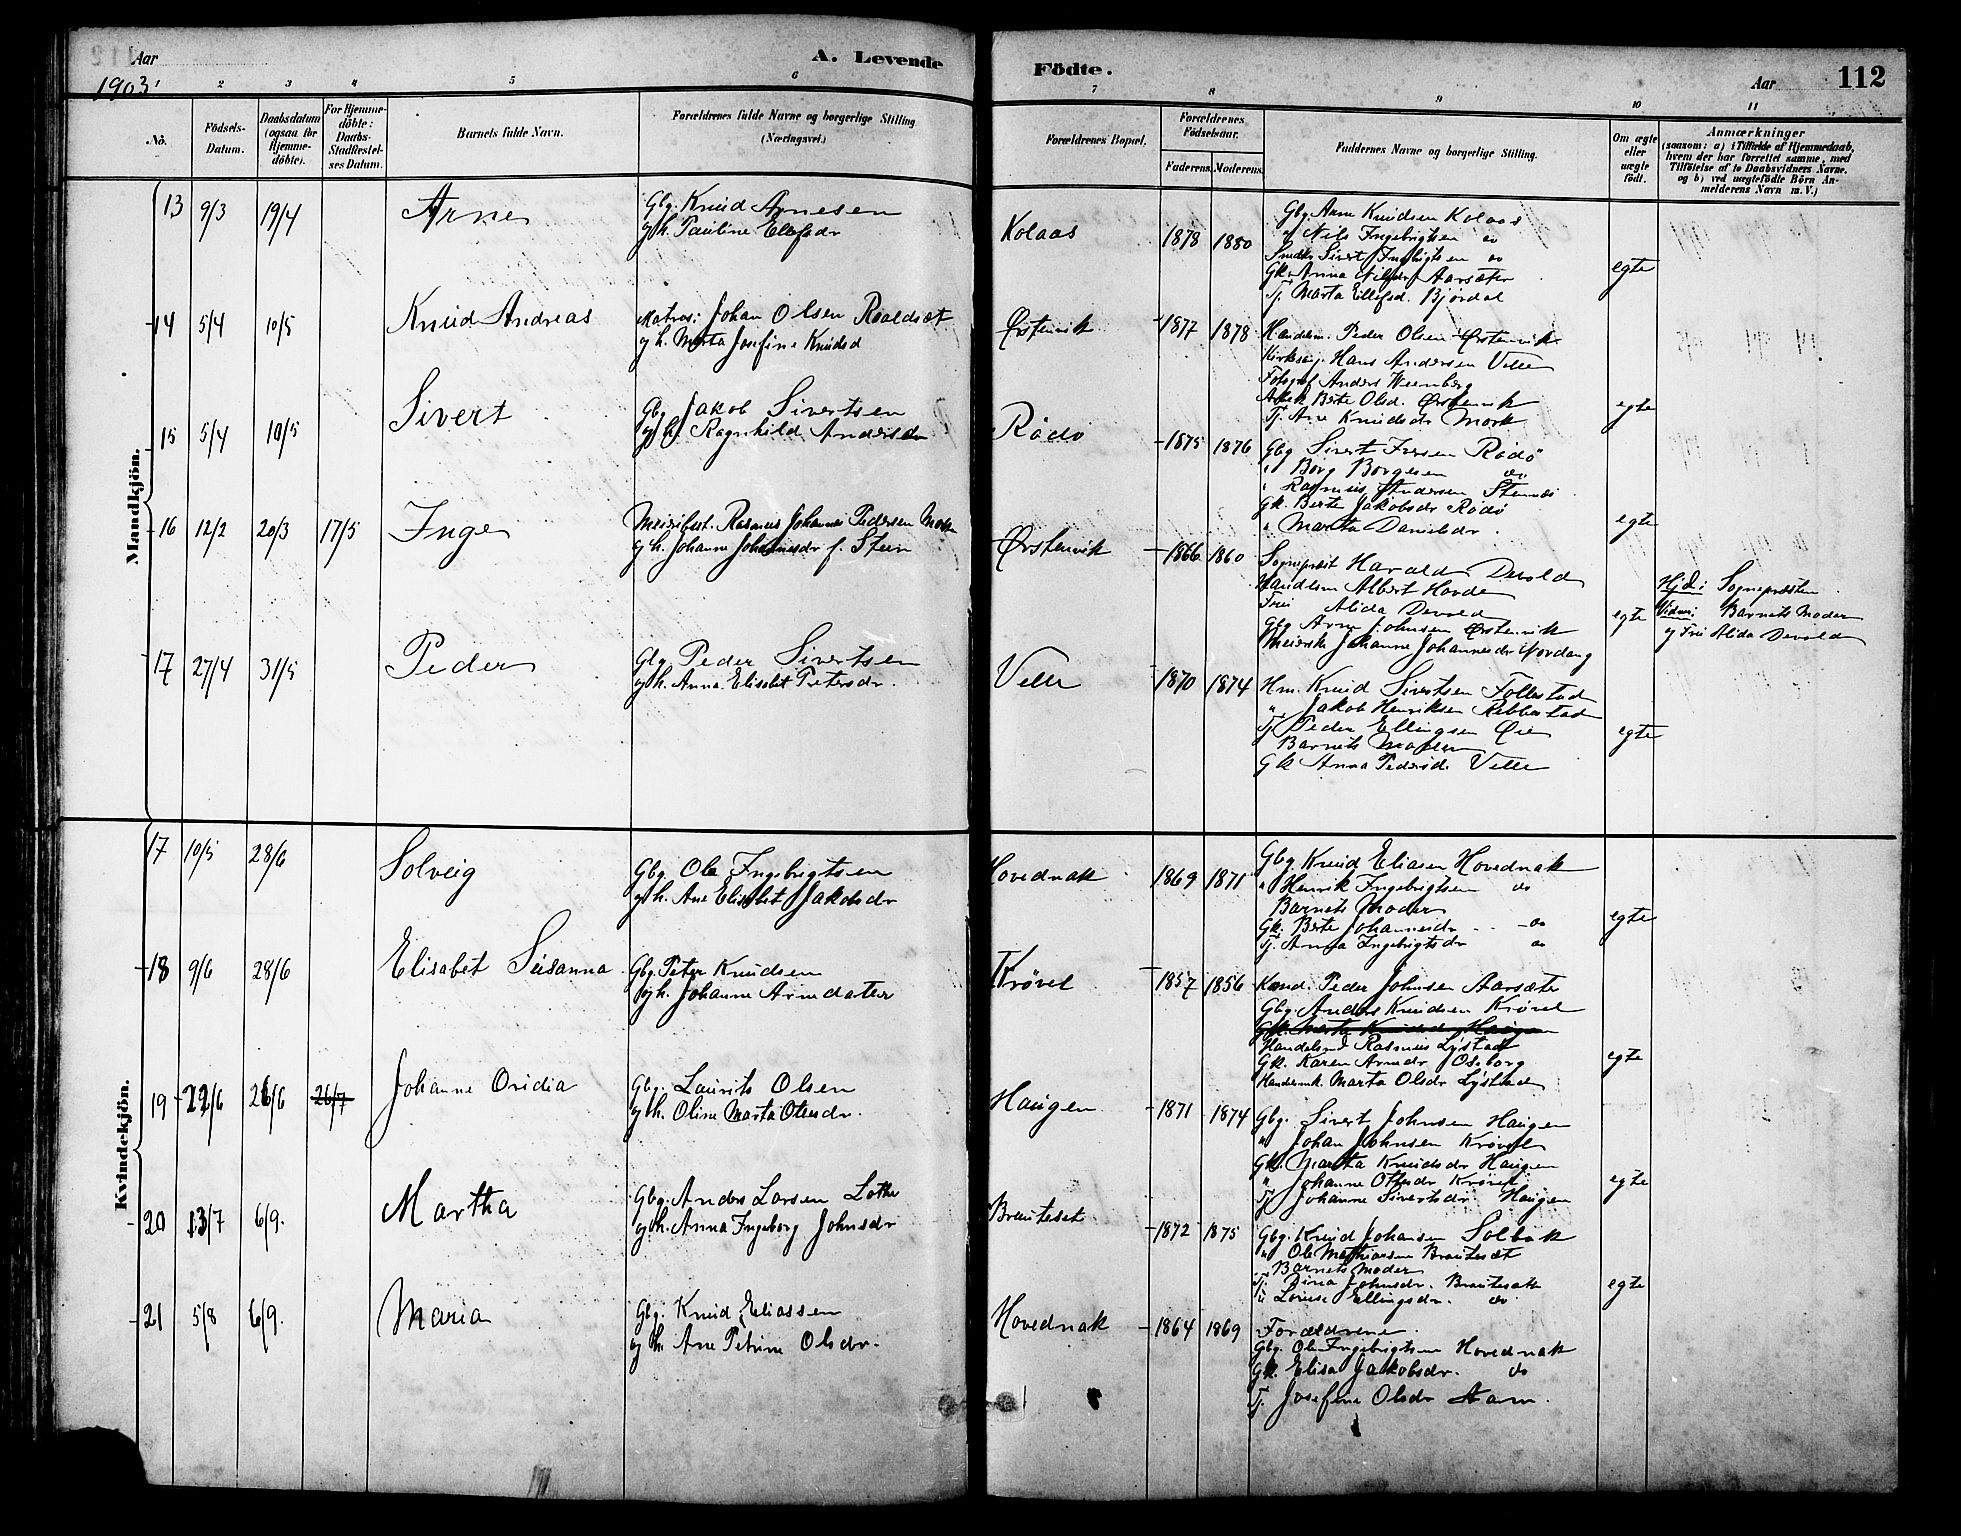 Aar
1903
A. Levende
Födte.
Aar
112
1
2
3
4
5
6
7
8
9
10
11
No.
Födsels-Datum.
Daabsdatum (ogsaa for Hjemme-döbte).
For Hjemme-döbte: Daabs-Stadfæstel-ses Datum.
Barnets fulde Navn.
Forældrenes fulde Navne og borgerlige Stilling
(Næringsvei.)
Forældrenes Bopæl.
Forældrenes Födselsaar.
Faderens.
Moderens.
Faddernes Navne og borgerlige Stilling.
Om ægte eller uægte födt.
Anmærkninger
(saasom: a) i Tilfælde af Hjemmedaab,
hvem der har forrettet samme, med
Tilföielse af to Daabsvidners Navne,
og b) ved uægtefödte Börn An-
melderens Navn m. V.)
Mandkjön.
13 9/3 19/4 Arne
Gbg. Knud Arnesen
og h. Pauline Ellefsdr
Kolaas 1878 1880
Gbg. Arne Knudsen Kolaas
" Nils Ingebrigtsen do
Sivert Ingebrigtsen do
Gk. Anna Nilsdr Aarsæter
Tj. Marta Ellefsd. Bjørdal
egte
14 5/4 10/5 Knud Andreas
Matros: Johan Olsen Roaldset
og h. Marta Josefine Knudsd
Ørstenvik 1877 1878
Handelsm. Peder Olsen Ørstenvik
Kirkesang. Hans Andersen Velle
Fotograf Anders Weenberg
Berte Olsd. Ørstenvik
Tj. Ane Knudsdr Mork
egte
15 5/4 10/5 Sivert
Gbg Jakob Sivertsen
og h. Ragnhild Andersdr
Rødø 1875 1876
Gbg Sivert Iversen Rødø
" Borg Borgesen do
" Rasmus Andersen Stennes
Gk. Berte Jakobsdr Rødø
" Marta Danieldr.
egte
16 12/2 20/3 17/5 Inge
Meieribest. Rasmus Johannes Pedersen Mork
og h. Johanne Johannesdr f. Steen
Ørstenvik 1866 1860
Sognepræst Harald Devold
Handelsm Albert Hovde
Frøi Alida Devold
Gbg Arne Johnsen Ørstenvik
Meierske Johanne Johannesdr Nordang
egte
Hjd: Sognepræsten
Vidner: Barnets Moder
og Frøi Alida Devold
17 27/4 31/5 Peder
Gbg Peder Sivertsen
og h. Anna Elisabet Petersdr.
Velle 1870 1874
Hm. Knud Sivertsen Follestad
" Jakob Henriksen Rebbestad
Tj. Peder Ellingsen Øie
Barnets Moder
Gk Anna Pedersd. Velle
egte
Kvindekjön.
17 10/5 28/6 Solveig
Gbg. Ole Ingebrigtsen
og h. Ane Elisabet Jakobsdr
Hovednak 1869 1871
Gbg Knud Eliasen Hovednak
" Henrik Ingebrigtsen do
Barnets Moder
Gk. Berte Johannesdr do
Tj. Anna Ingebrigtsdr do
egte
18 9/6 28/6 Elisabet Susanna
Gbg. Peter Knudsen
og h. Johanne Arnedatter
Krøvel 1857 1856
Kand. Peder Johnsen Aarsæter
Gbg. Anders Knudsen Krøvel
Handelsmd Rasmus Lystad
Gk. Karen Arnedr Oseborg
Handelsmk. Marta Olsdr Lystad
egte
19 22/6 26/6 26/7 Johanne Ovidia
Gbg. Laurits Olsen
og h. Oline Marta Ottesdr.
Haugen 1871 1874
Gbg. Sivert Johnsen Haugen
" Johan Johnsen Krøvel
Gk. Marta Knudsdr Haugen
" Johanne Ottesdr Krøvel
Tj. Johanne Sivertsdr. Haugen
egte
20 13/7 6/9. Martha
Gbg. Anders Larsen Lothe
og h. Anna Ingeborg Johnsdr
Brauteset 1872 1875
Gbg. Knud Johansen Solbak
" Ole Mathiasen Brautesæt
Barnets Moder
Tj. Dina Johnsdr. Brautesæt
" Lovise Ellingsdr. do
egte
21 5/8 6/9. Maria
Gbg. Knud Eliassen
og h. Ane Petrine Olsdr.
Hovednak 1864 1869
Forældrene.
Gbg. Ole Ingebrigtsen Hovednak
Gk. Elisa Jakobsdr. do
Tj. Josefine Olsdr Aam.